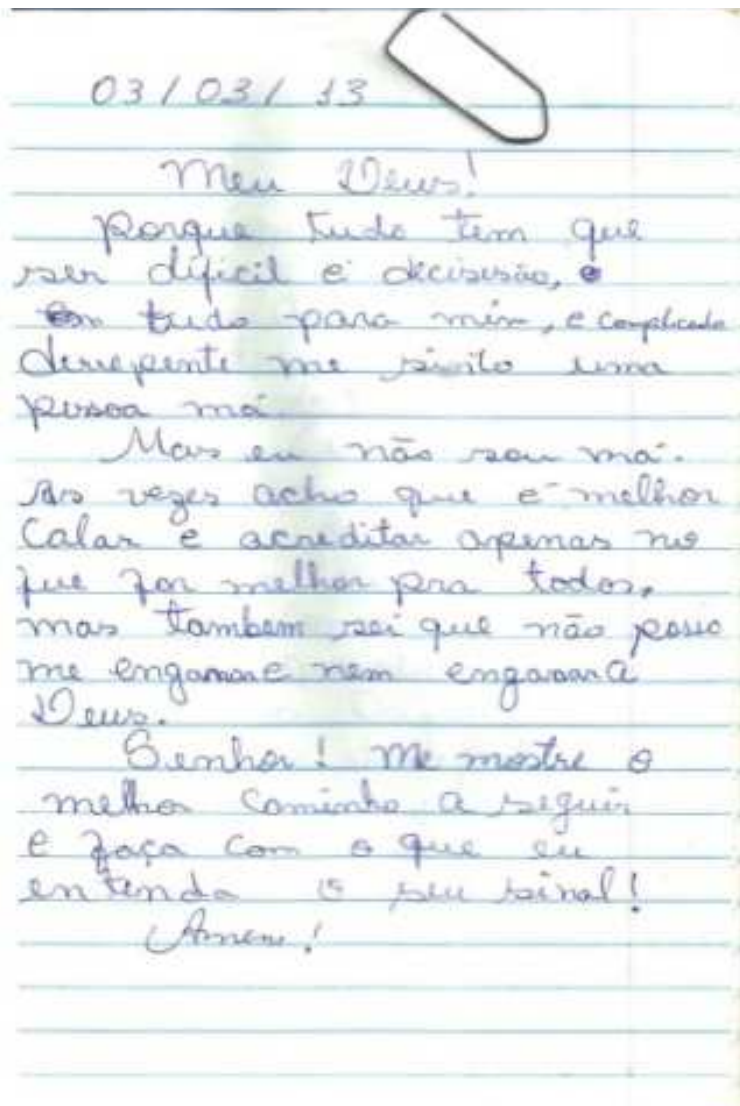 03/03/13
Meu Deus!
Porque tudo tem que
ser dificil e decisisão, e
em tudo para mim, e complicado
derrepente me sinto uma
pessoa má.
Mais eu não sou má.
As vezes acho que e melhor
Calar e acreditar apenas no
que for melhor pra todos,
mas tambem sei que não posso
me enganar e nem enganar a
Deus.
Senhor! Me mostre o
melhor caminho a seguir
e faça com o que eu
entenda o seu sinal!
Amem!